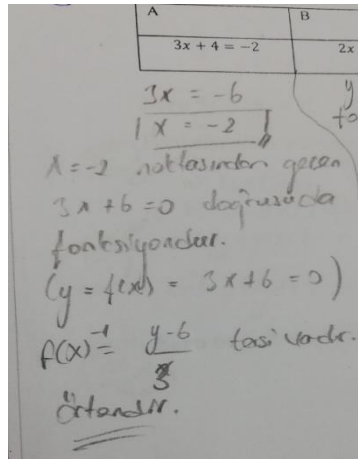 A B
3x + 4 = -2 2x
3x = -6 y
x = -2 to
x = -2 noktasından geçen
3x + 6 = 0 doğrusuda
fonksiyondur.
(y = f(x) = 3x + 6 = 0)
f(x)⁻¹ = y-6 / 3 tersi vardır.
örtendir.